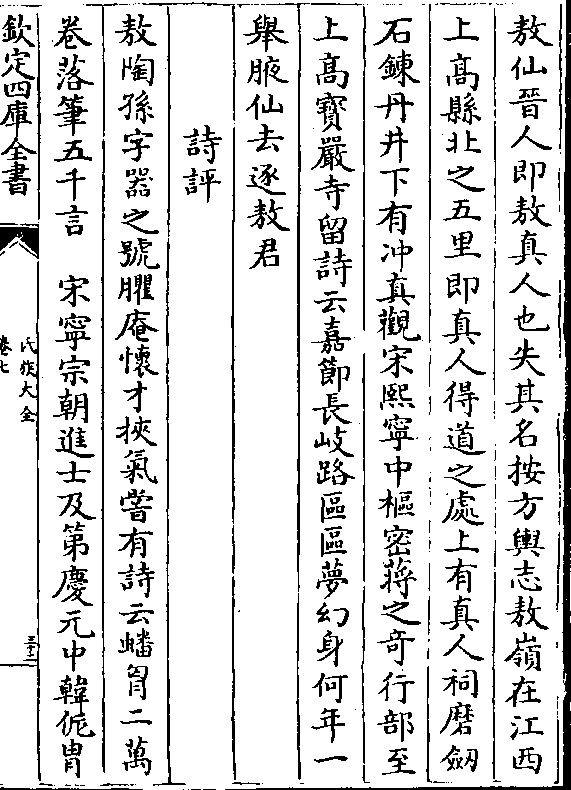 敖仙晉人即敖真人也失其名按方輿志敖嶺在江西
上髙縣北之五里即真人得道之處上有真人祠磨劔
石鍊丹井下有冲真觀宋熙寧中樞密蔣之竒行部至
上髙寳嚴寺留詩云嘉節長岐路區區夢幻身何年一
舉腋仙去逐敖君
詩評
敖陶孫字器之號臞庵懷才挾氣嘗有詩云蟠胷二萬
卷落筆五千言　宋寧宗朝進士及第慶元中韓侂胄
欽定四庫全書
氏族大全
卷七
三十二